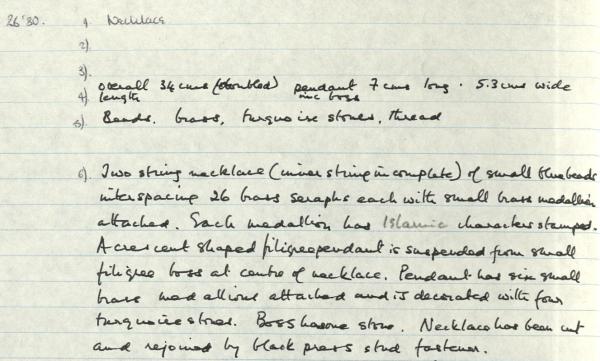 26'30. 1) Necklace
2)
3)
overall 34 cms (doubled) pendant 7 cms long. 5.3 cms wide
4) length inc boss
5) Beads, brass, turquoise stones, thread
6) Two string necklace (inner string incomplete) of small blue beads
interspacing 26 brass seraphs each with small brass medallion
attached. Each medallion has Islamic characters stamped.
A crescent shaped filigree pendant is suspended from small
filigree boss at centre of necklace. Pendant has six small
brass medallions attached and is decorated with four
turquoise stones. Boss has one stone. Necklace has been cut
and rejoined by black press stud fastener.